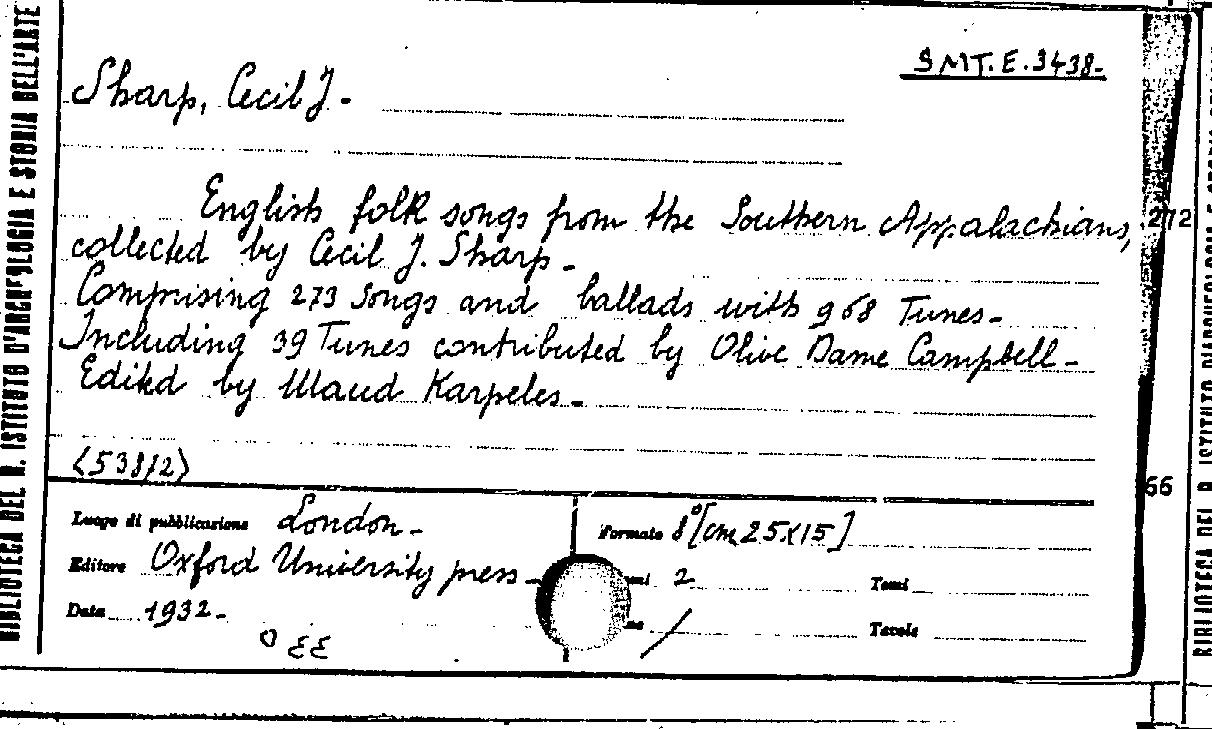 BIBLIOTECA DEL R. ISTITUTO D'ARCHEOLOGIA E STORIA DELL'ARTE
SMT.E.3438-
Sharp, Cecil J.-
English folk songs from the Southern Appalachians,
272
collected by Cecil J. Sharp-
Comprising 273 Songs and ballads with 968 Tunes-
Including 39 Tunes contributed by Olive Dame Campbell-
Edited by Maud Karpeles-
<538/2>
66
Luogo di pubblicazione London-
Formato 8° [cm 25x15]
Editore Oxford University press-
2
Tomi
Data 1932-
/
Tavole
BIBLIOTECA DEL R. ISTITUTO D'ARCHEOLOGIA E STORIA